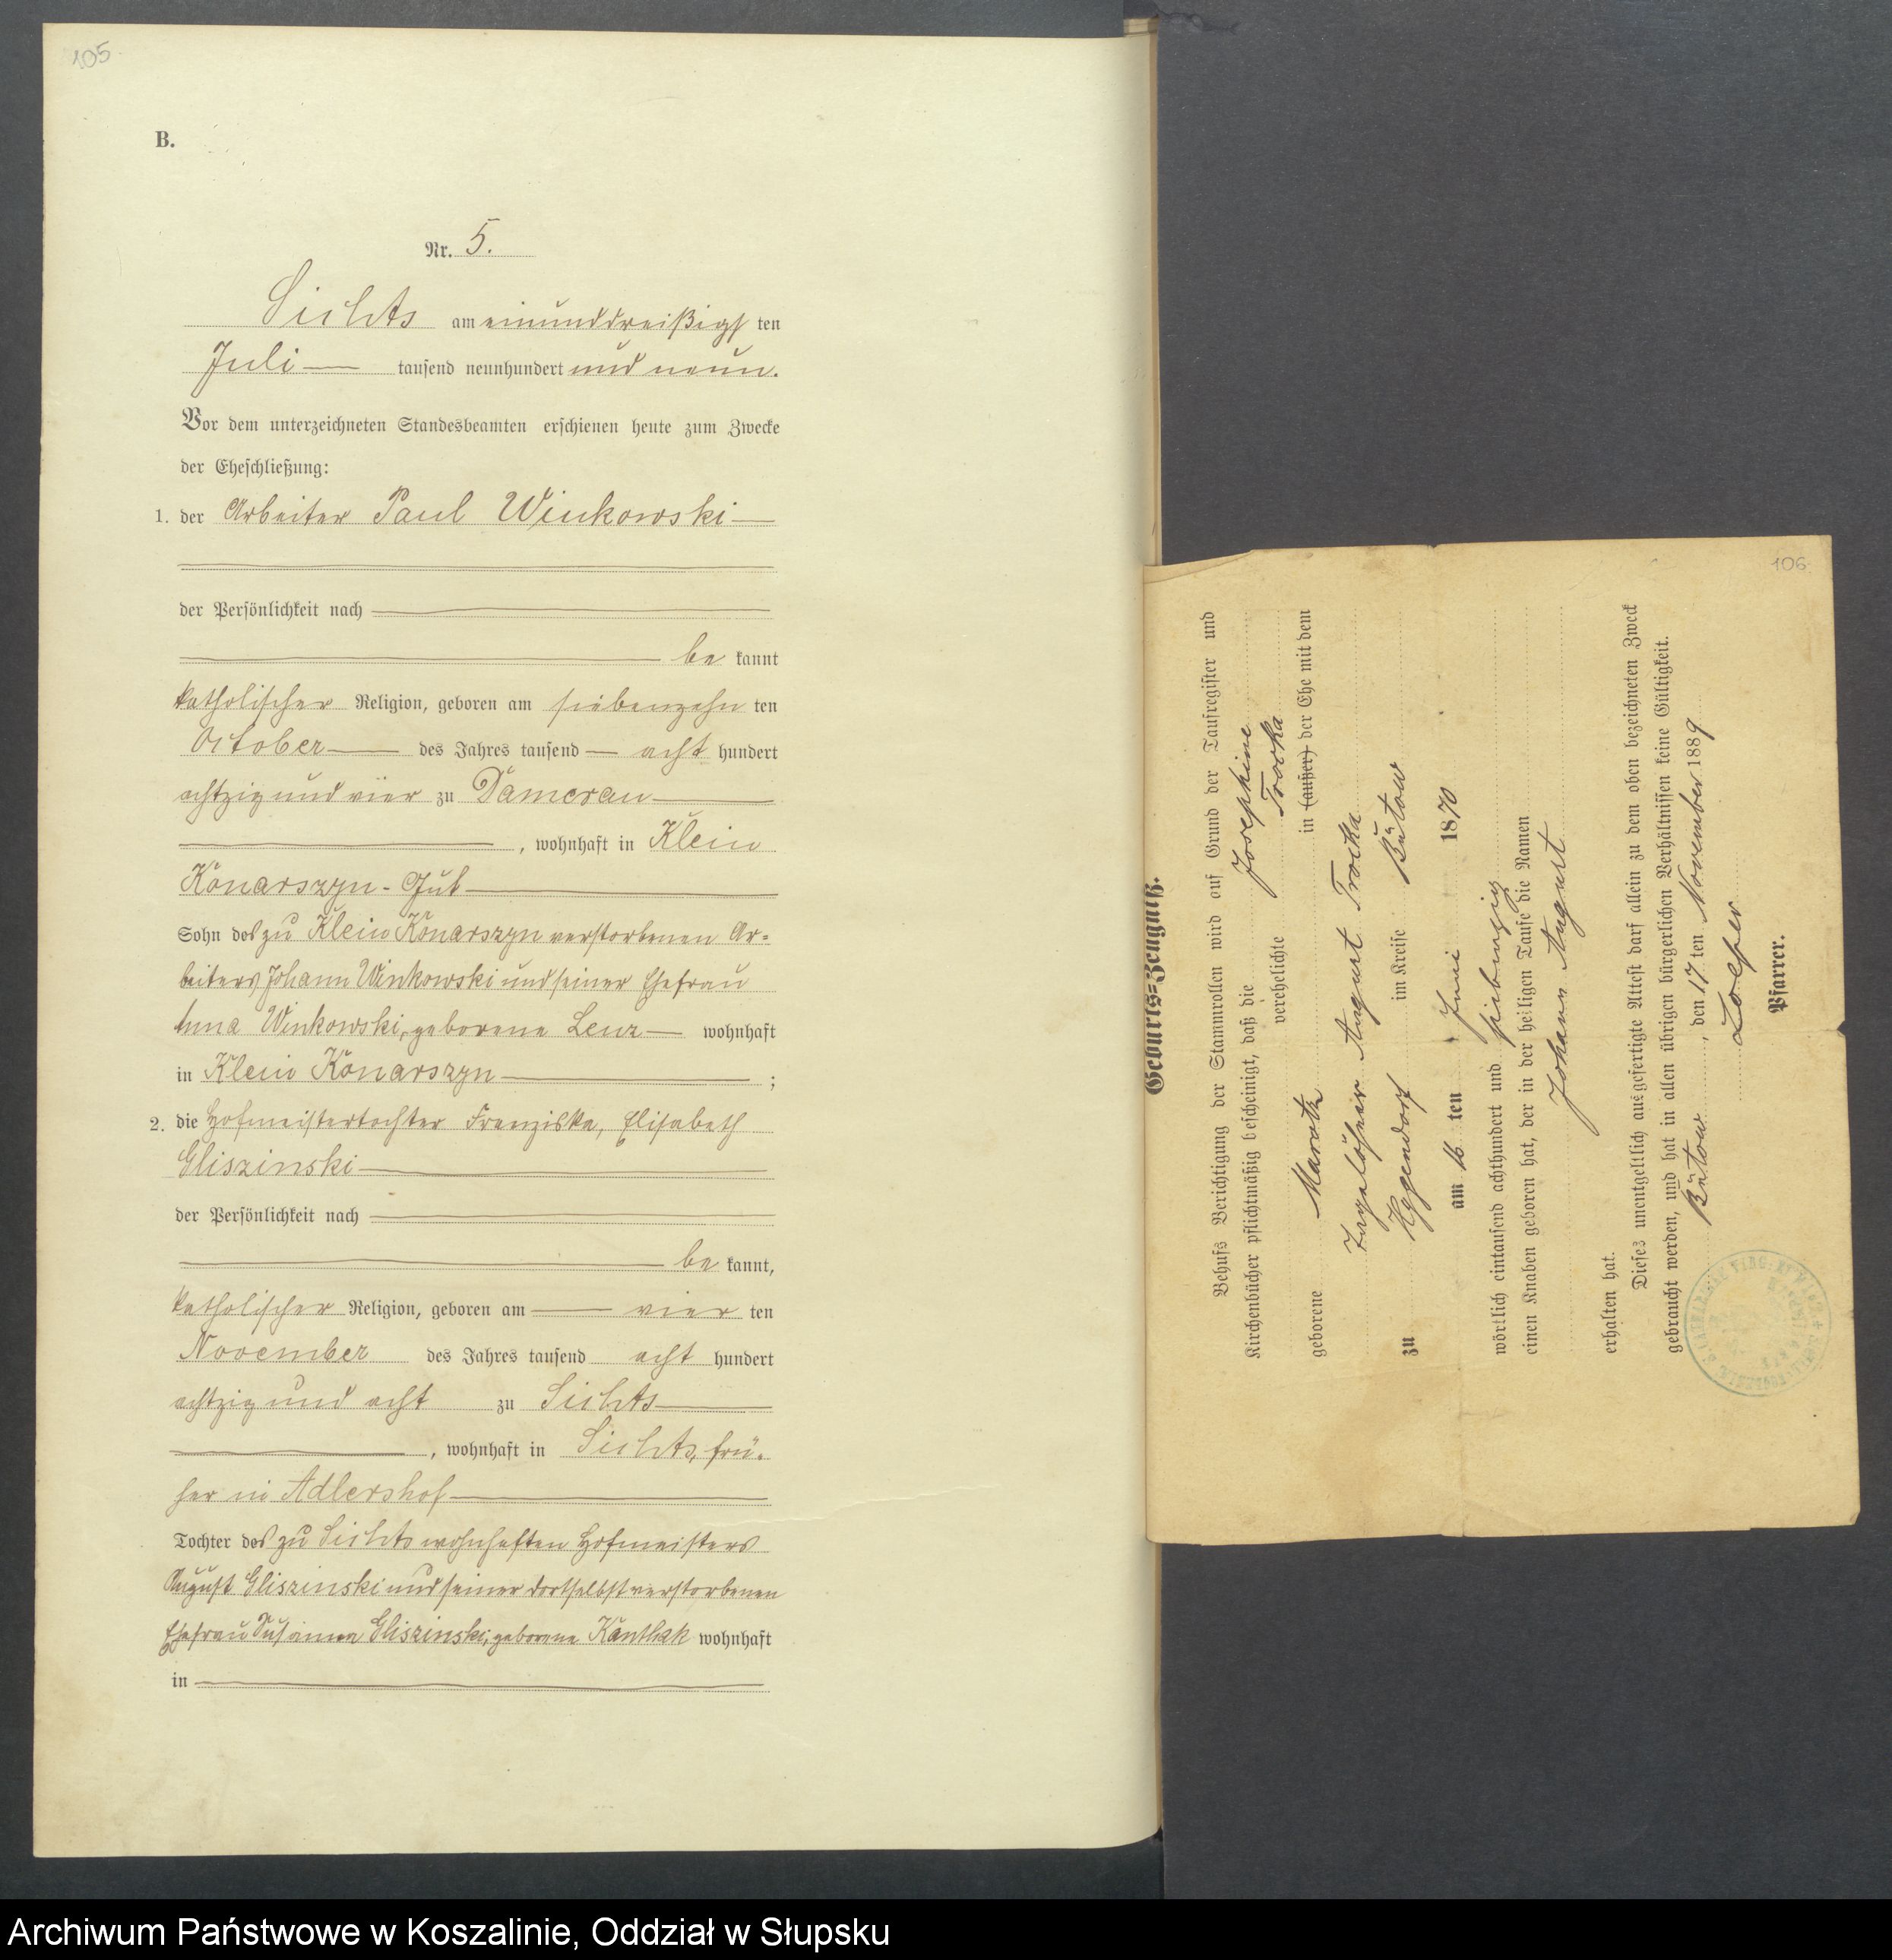 105.
B.
Nr. 5.
Sichts am einunddreißigsten
Juli tausend neunhundert und neun.
Vor dem unterzeichneten Standesbeamten erschienen heute zum Zwecke
der Eheschließung:
1. der Arbeiter Paul Winkowski
der Persönlichkeit nach
be kannt
katholischer Religion, geboren am siebenzehn ten
October des Jahres tausend acht hundert
achtzig und vier zu Damerau
, wohnhaft in Klein
Konarszyn-Gut
Sohn des zu Klein Konarszyn verstorbenen Ar-
beiters Johann Winkowski und seiner Ehefrau
Anna Winkowski, geborene Lenz wohnhaft
in Klein Konarszyn ;
2. die Hofmeistertochter Franziska, Elisabeth
Gliszinski
der Persönlichkeit nach
be kannt,
katholischer Religion, geboren am vier ten
November des Jahres tausend acht hundert
achtzig und acht zu Sichts
, wohnhaft in Sichts, frü-
her in Adlershof
Tochter des zu Sichts wohnhaften Hofmeisters
August Gliszinski und seiner dortselbst verstorbenen
Ehefrau Susanna Gliszinski, geborene Kanthak wohnhaft
in
106
Geburts-Zeugniß.
Behufs Berichtigung der Stammrollen wird auf Grund der Taufregister und
Kirchenbücher pflichtmäßig bescheinigt, daß die Josephine
verehelichte Trocka
geborene in (außer) der Ehe mit dem
August Trocka
zu im Kreise Bütow
am 16 ten Juni 1870
wörtlich eintausend achthundert und siebenzig
einen Knaben geboren hat, der in der heiligen Taufe die Namen
Johann August
erhalten hat.
Dieses unentgeltlich ausgefertigte Attest darf allein zu dem oben bezeichneten Zweck
gebraucht werden, und hat in allen übrigen bürgerlichen Verhältnissen keine Gültigkeit.
Bütow, den 17 ten November 1889
Loeper
Pfarrer.
Archiwum Państwowe w Koszalinie, Oddział w Słupsku